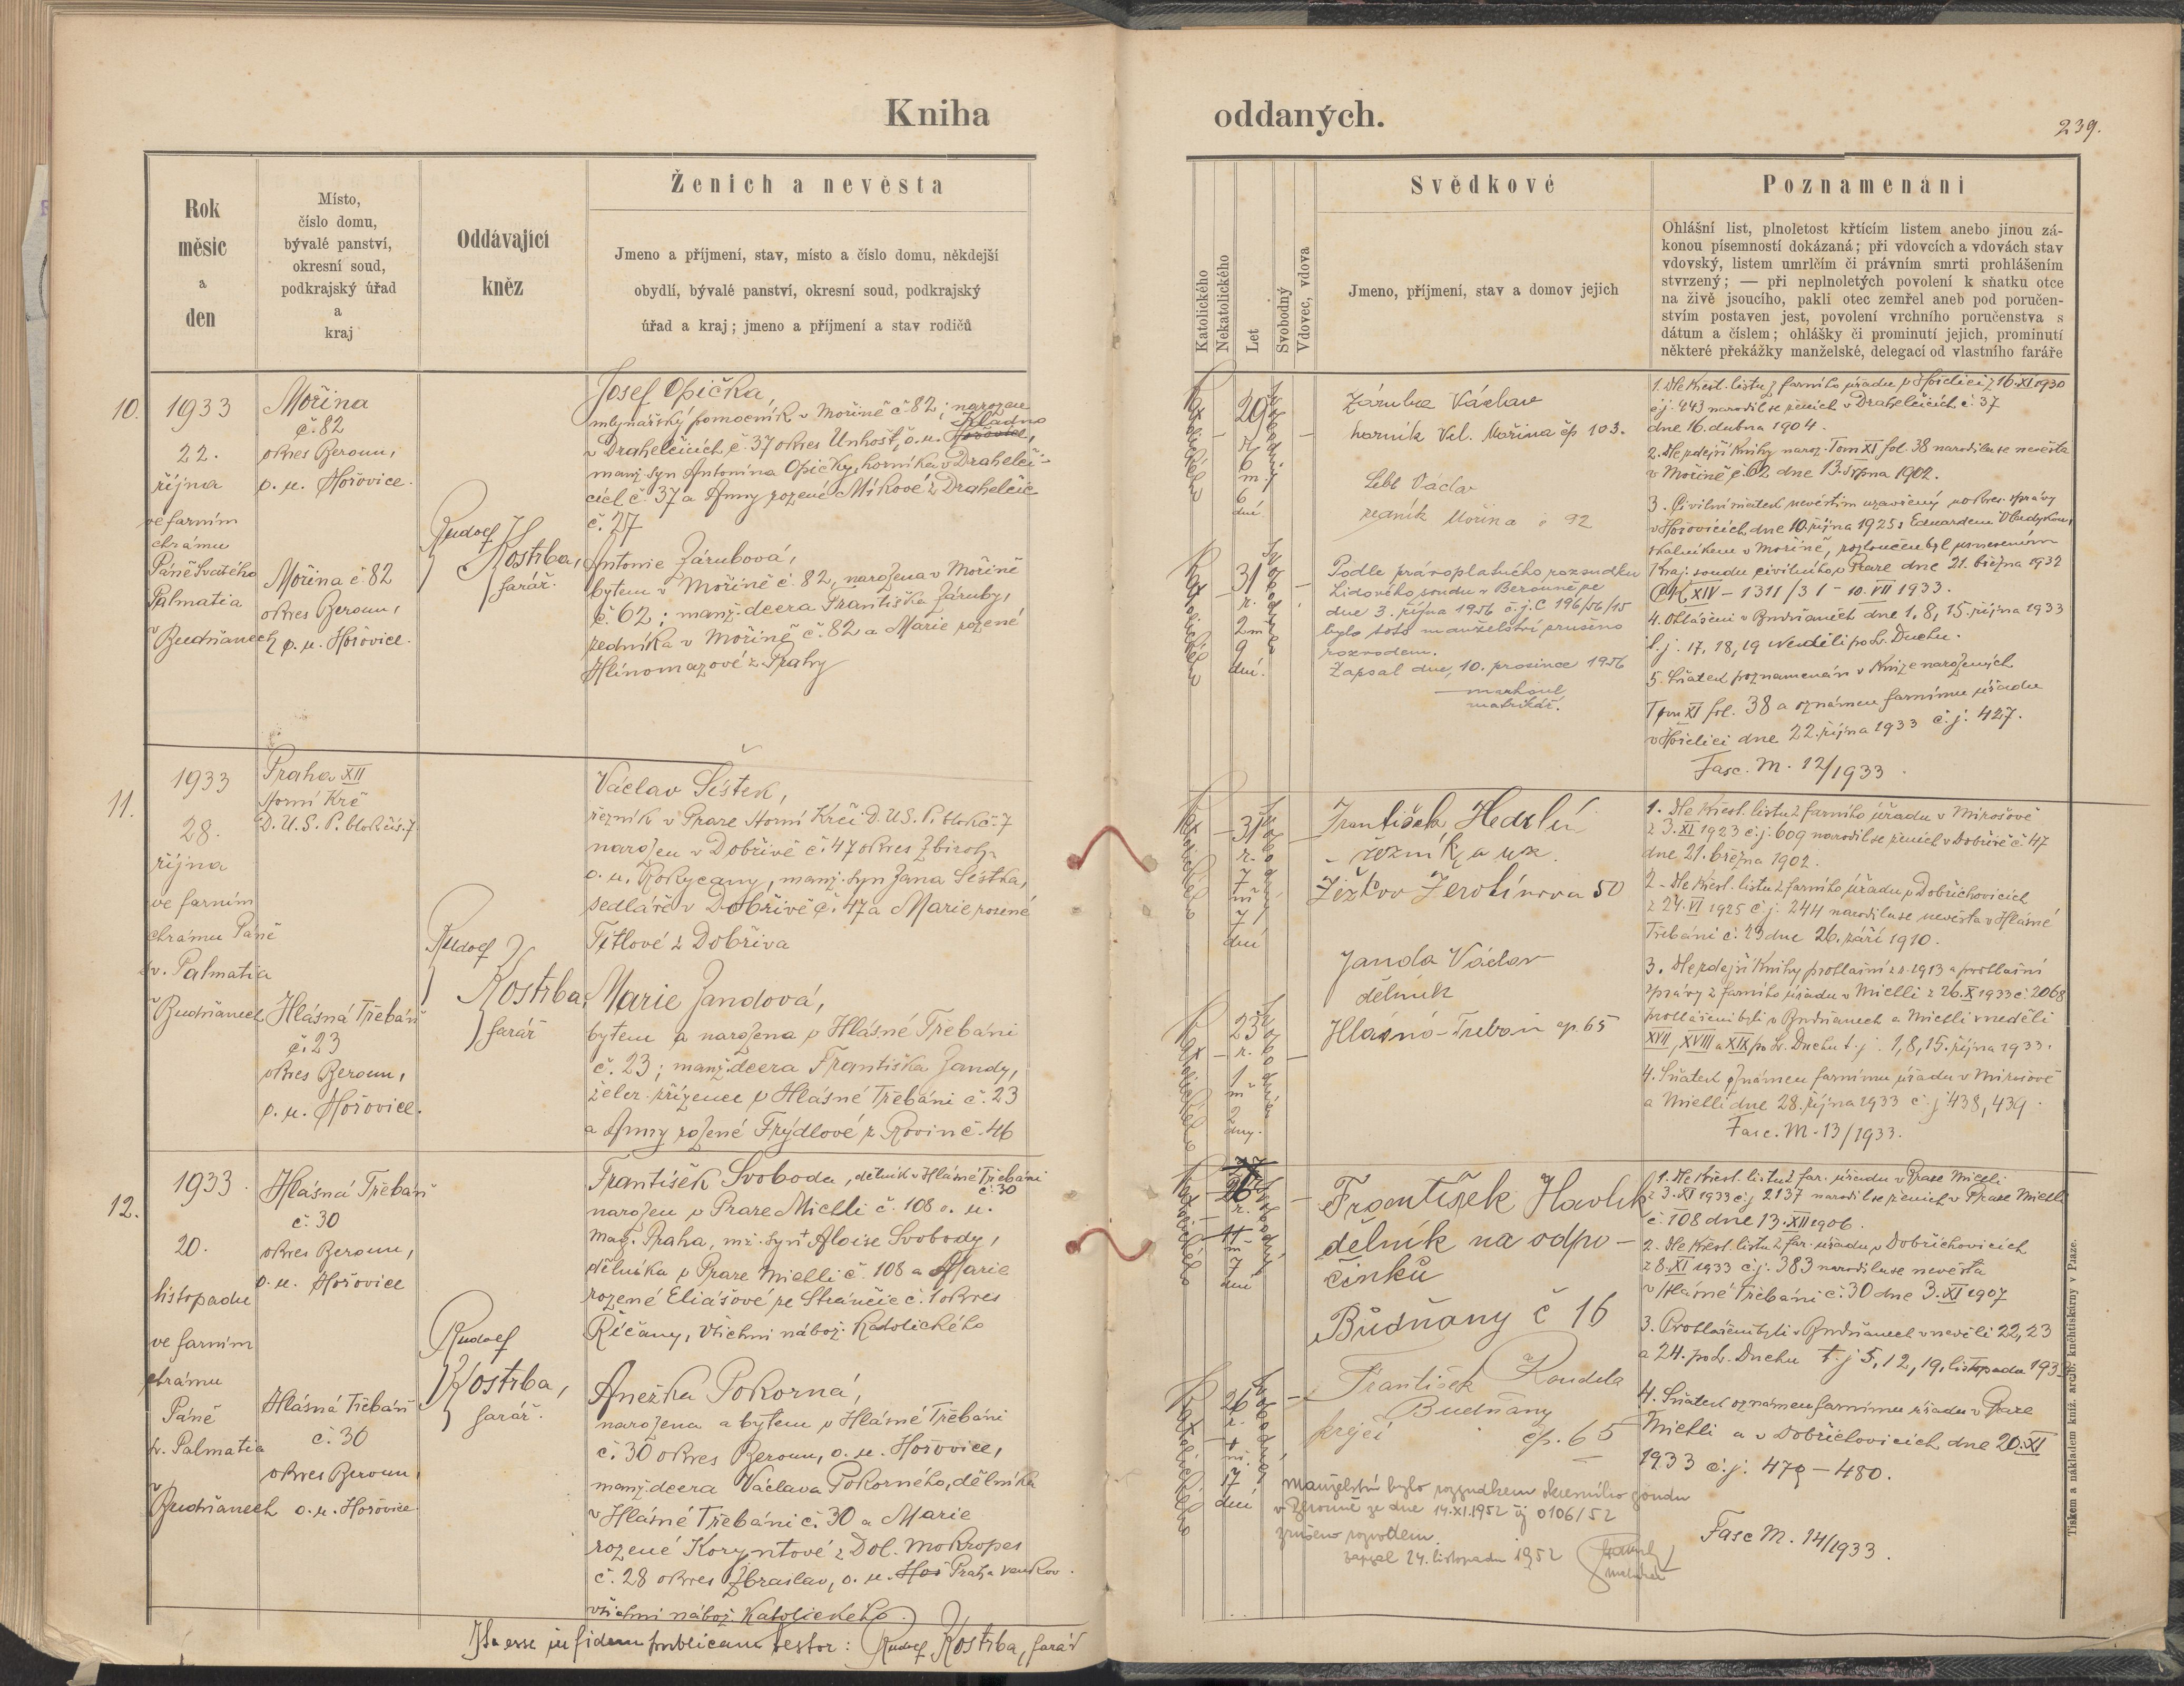 Kniha
oddaných.
239.
Rok
měsíc
a
den
Místo,
číslo domu,
bývalé panství,
okresní soud,
podkrajský úřad
a
kraj
Oddávající
kněz
Ženich a nevěsta
Jmeno a příjmení, stav, místo a číslo domu, někdejší
obydlí, bývalé panství, okresní soud, podkrajský
úřad a kraj; jmeno a příjmení a stav rodičů
Katolického
Nekatolického
Let
Svobodný
Vdovec, vdova
Svědkové
Jmeno, příjmení, stav a domov jejich
Poznamenání
Ohlášní list, plnoletost křtícím listem anebo jinou zá-
konou písemností dokázaná; při vdovcích a vdovách stav
vdovský, listem umrlčím či právním smrti prohlášením
stvrzený; — při neplnoletých povolení k sňatku otce
na živě jsoucího, pakli otec zemřel aneb pod poručen-
stvím postaven jest, povolení vrchního poručenstva s
dátum a číslem; ohlášky či prominutí jejich, prominutí
některé překážky manželské, delegací od vlastního faráře
10.
1933
22.
října
ve farním
chrámu
Páně Svatého
Palmatia
v
Budňanech
Mořina
č. 82
okres Beroun,
o. u. Hořovice.
Mořina č. 82
okres Beroun,
o. u. Hořovice.
Rudolf
Kostrba,
farář.
Josef Opička,
mlynářský pomocník v Mořině č. 82; narozen
Kladno
v Drahelčicích č. 37 okres Unhošť, o. u. Hořovice,
manž. syn Antonína Opičky, horníka v Drahelči-
cích č. 37 a Anny rozené Míkové z Drahelčic
č. 27
Antonie Zárubová,
bytem v Mořině č. 82, narozena v Mořině
č. 62; manž. dcera Františka Záruby,
zedníka v Mořině č. 82 a Marie rozené
Hlínomazové z Prahy
Katolického
29
r.
6
m.
6
dní
Svobodný
Katolického
31
r.
2 m
9
dní.
Záruba Václav
horník Vel. Mořina čp 103.
Václav
zedník Mořina č 92
Podle právoplatného rozsudku
Lidového soudu v Berouně ze
dne 3. října 1956 č. j. C 196/56/15
bylo toto manželství zrušeno
rozvodem.
Zapsal dne, 10. prosince 1956
matrikář.
1. Dle křest. listu z farního úřadu v Hořelici z 16. XI 1930
č. j. 443 narodil se ženich v Drahelčicích č. 37
dne 16. dubna 1904.
2. Dle zdejší Knihy naroz. Tom XI fol. 38 narodila se nevěsta
v Mořině č. 62 dne 13. srpna 1902.
3. Civilní sňatek nevěstin uzavřený u okres. správy
v Hořovicích dne 10. října 1925 s Eduardem
skalníkem v Mořině, rozloučen byl usnesením
Kraj. soudu civilního v Praze dne 21. března 1932
Ck XIV - 1311/31 - 10. VII 1933.
4. Ohlášeni v Budňanech dne 1, 8, 15. října 1933
t. j. 17, 18, 19 Neděli po Sv. Duchu.
5. Sňatek poznamenán v Knize narozených
Tom XI fol. 38 a oznámen farnímu úřadu
v Hořelici dne 22. října 1933 č. j. 427.
Fasc. M. 12/1933.
11.
1933
28.
října
ve farním
chrámu Páně
sv. Palmatia
v
Budňanech
Praha XII
Horní Krč
D. U. S. P. blok čís. 7
Hlásná Třebáň
č. 23
okres Beroun,
o. u. Hořovice.
Rudolf
Kostrba,
farář
Václav Šístek,
řezník v Praze Horní Krči D. U. S. P. blok č. 7
narozen v Dobřívě č. 47 okres Zbiroh
o. u. Rokycany, manž. syn Jana Šístka,
sedláře v Dobřívě č. 47 a Marie rozené
Títlové z Dobříva
Marie Jandová,
bytem a narozena v Hlásné Třebáni
č. 23; manž. dcera Františka Jandy,
želez. zřízence v Hlásné Třebáni č. 23
a Anny rozené Frýdlové z Rovin č. 46
Katolického
31
r.
7
m
7
dní
Svobodný
Katolického
23
r.
1
m
2
dny.
František Hedrlín
řezník a uz.
Žižkov Žerotínova 50
Janda Václav
dělník
Hlásná-Třebaň čp. 65
1. Dle křest. listu z farního úřadu v Mirošově
z 3. XI 1923 č. j. 609 narodil se ženich v Dobřívě č. 47
dne 21. března 1902.
2. Dle křest. listu z farního úřadu v Dobřichovicích
z 24. VI 1925 č. j. 244 narodila se nevěsta v Hlásné
Třebáni č. 23 dne 26. září 1910.
3. Dle zdejší Knihy prohlášní z r. 1913 a prohlášní
zprávy z farního úřadu v Michli z 26. X 1933 č. 2068
prohlášeni byli v Budňanech a Michli v neděli
XVII, XVIII a XIX po Sv. Duchu t. j. 1, 8, 15. října 1933.
4. Sňatek oznámen farnímu úřadu v Mirošově
a Michli dne 28. října 1933 č. j. 438, 439.
Fasc. M. 13/1933.
12.
1933
20.
listopadu
ve farním
chrámu
Páně
sv. Palmatia
v
Budňanech
Hlásná Třebáň
č. 30
okres Beroun,
o. u. Hořovice
Hlásná Třebáň
č. 30
okres Beroun
o. u. Hořovice
Rudolf
Kostrba,
farář.
František Svoboda, dělník v Hlásné Třebáni
č. 30
narozen v Praze Michli č. 108 o. u.
mag. Praha, syn Aloise Svobody,
dělníka v Praze Michli č. 108 a Marie
rozené Eliášové ze Strančic č. 1 okres
Říčany, všichni nábož. Katolického
Anežka Pokorná,
narozena a bytem v Hlásné Třebáni
č. 30 okres Beroun, o. u. Hořovice,
manž. dcera Václava Pokorného, dělníka
v Hlásné Třebáni č. 30 a Marie
rozené Koryntové z Dol. Mokropes
č. 28 okres Zbraslav, o. u. Hoř Praha venkov.
všichni nábož. Katolického.
Katolického
26
r.
11
m
7
dní
Svobodný
Katolického
26
r.
m.
17
dní
František Havlík
dělník na odpo-
činků
Budňany č 16
František Koudela
Budňany
krejčí čp. 65
Manželství bylo rozsudkem okresního soudu
v Berouně ze dne 14. XI. 1952 čj 0106/52
zrušeno rozvodem.
zapsal 24. listopadu 1952
1. Dle křest. listu z far. úřadu v Praze Michli
z 3. XI 1933 č. j. 2137 narodil se ženich v Praze Michli
č. 108 dne 13. XII 1906.
2. Dle křest. listu z far. úřadu v Dobřichovicích
z 8. XI 1933 č. j. 383 narodila se nevěsta
v Hlásné Třebáni č. 30 dne 3. XI 1907
3. Prohlášeni byli v Budňanech v neděli 22, 23
a 24. po Sv. Duchu t. j 5, 12, 19, listopadu 1933
4. Sňatek oznámen farnímu úřadu v Praze
Michli a v Dobřichovicích dne 20. XI
1933 č. j. 479 - 480.
Fasc M. 14/1933.
Ita esse in fidem publicam testor: Rudolf Kostrba, farář
Tiskem a nákladem kníž. arcib. kněhtiskárny v Praze.